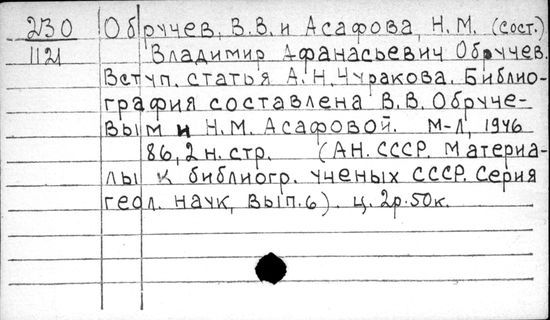 230 Обручев, В.В. и Асафова, Н.М. (сост.)
1121 Владимир Афанасьевич Обручев.
Вступ. статья А.Н. Чуракова. Библио-
графия составлена В.В. Обруче-
вым и Н.М. Асафовой. М-Л, 1946
86, 2 н. стр. (АН. СССР. Материа-
лы к библиогр. ученых СССР. Серия
геол. наук, вып. 6). ц. 2р. 50к.